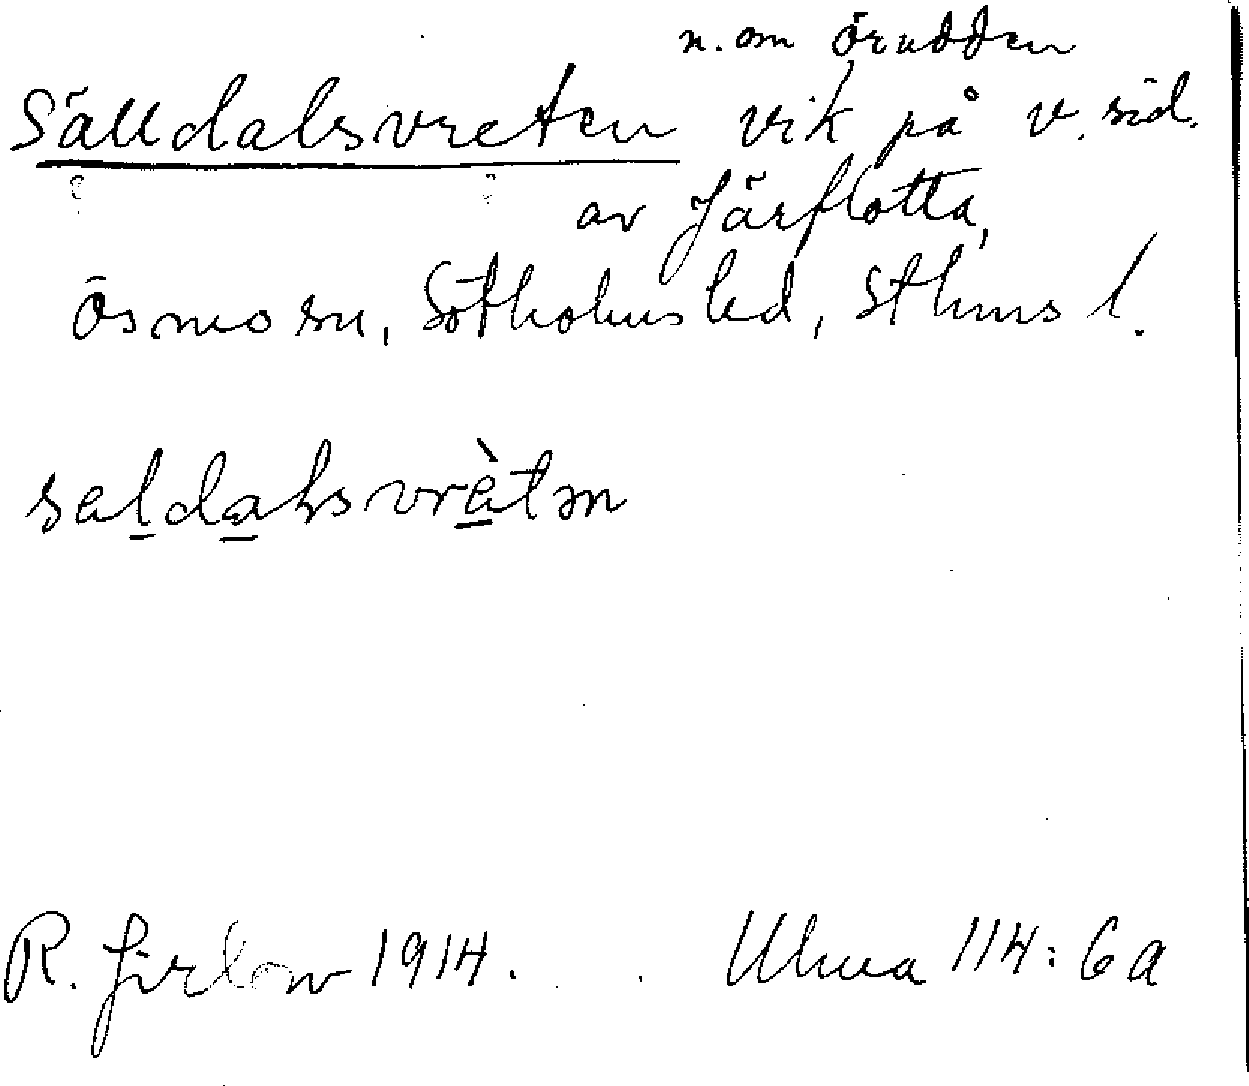 n. om Örudden
Sälldalsvreten vik på v. sid.
av Järflotta,
Ösmo sn, Sotholms hd, Sthms l.
saldalsvrètən
R. Jirlow 1914. Uhua 114: 6a